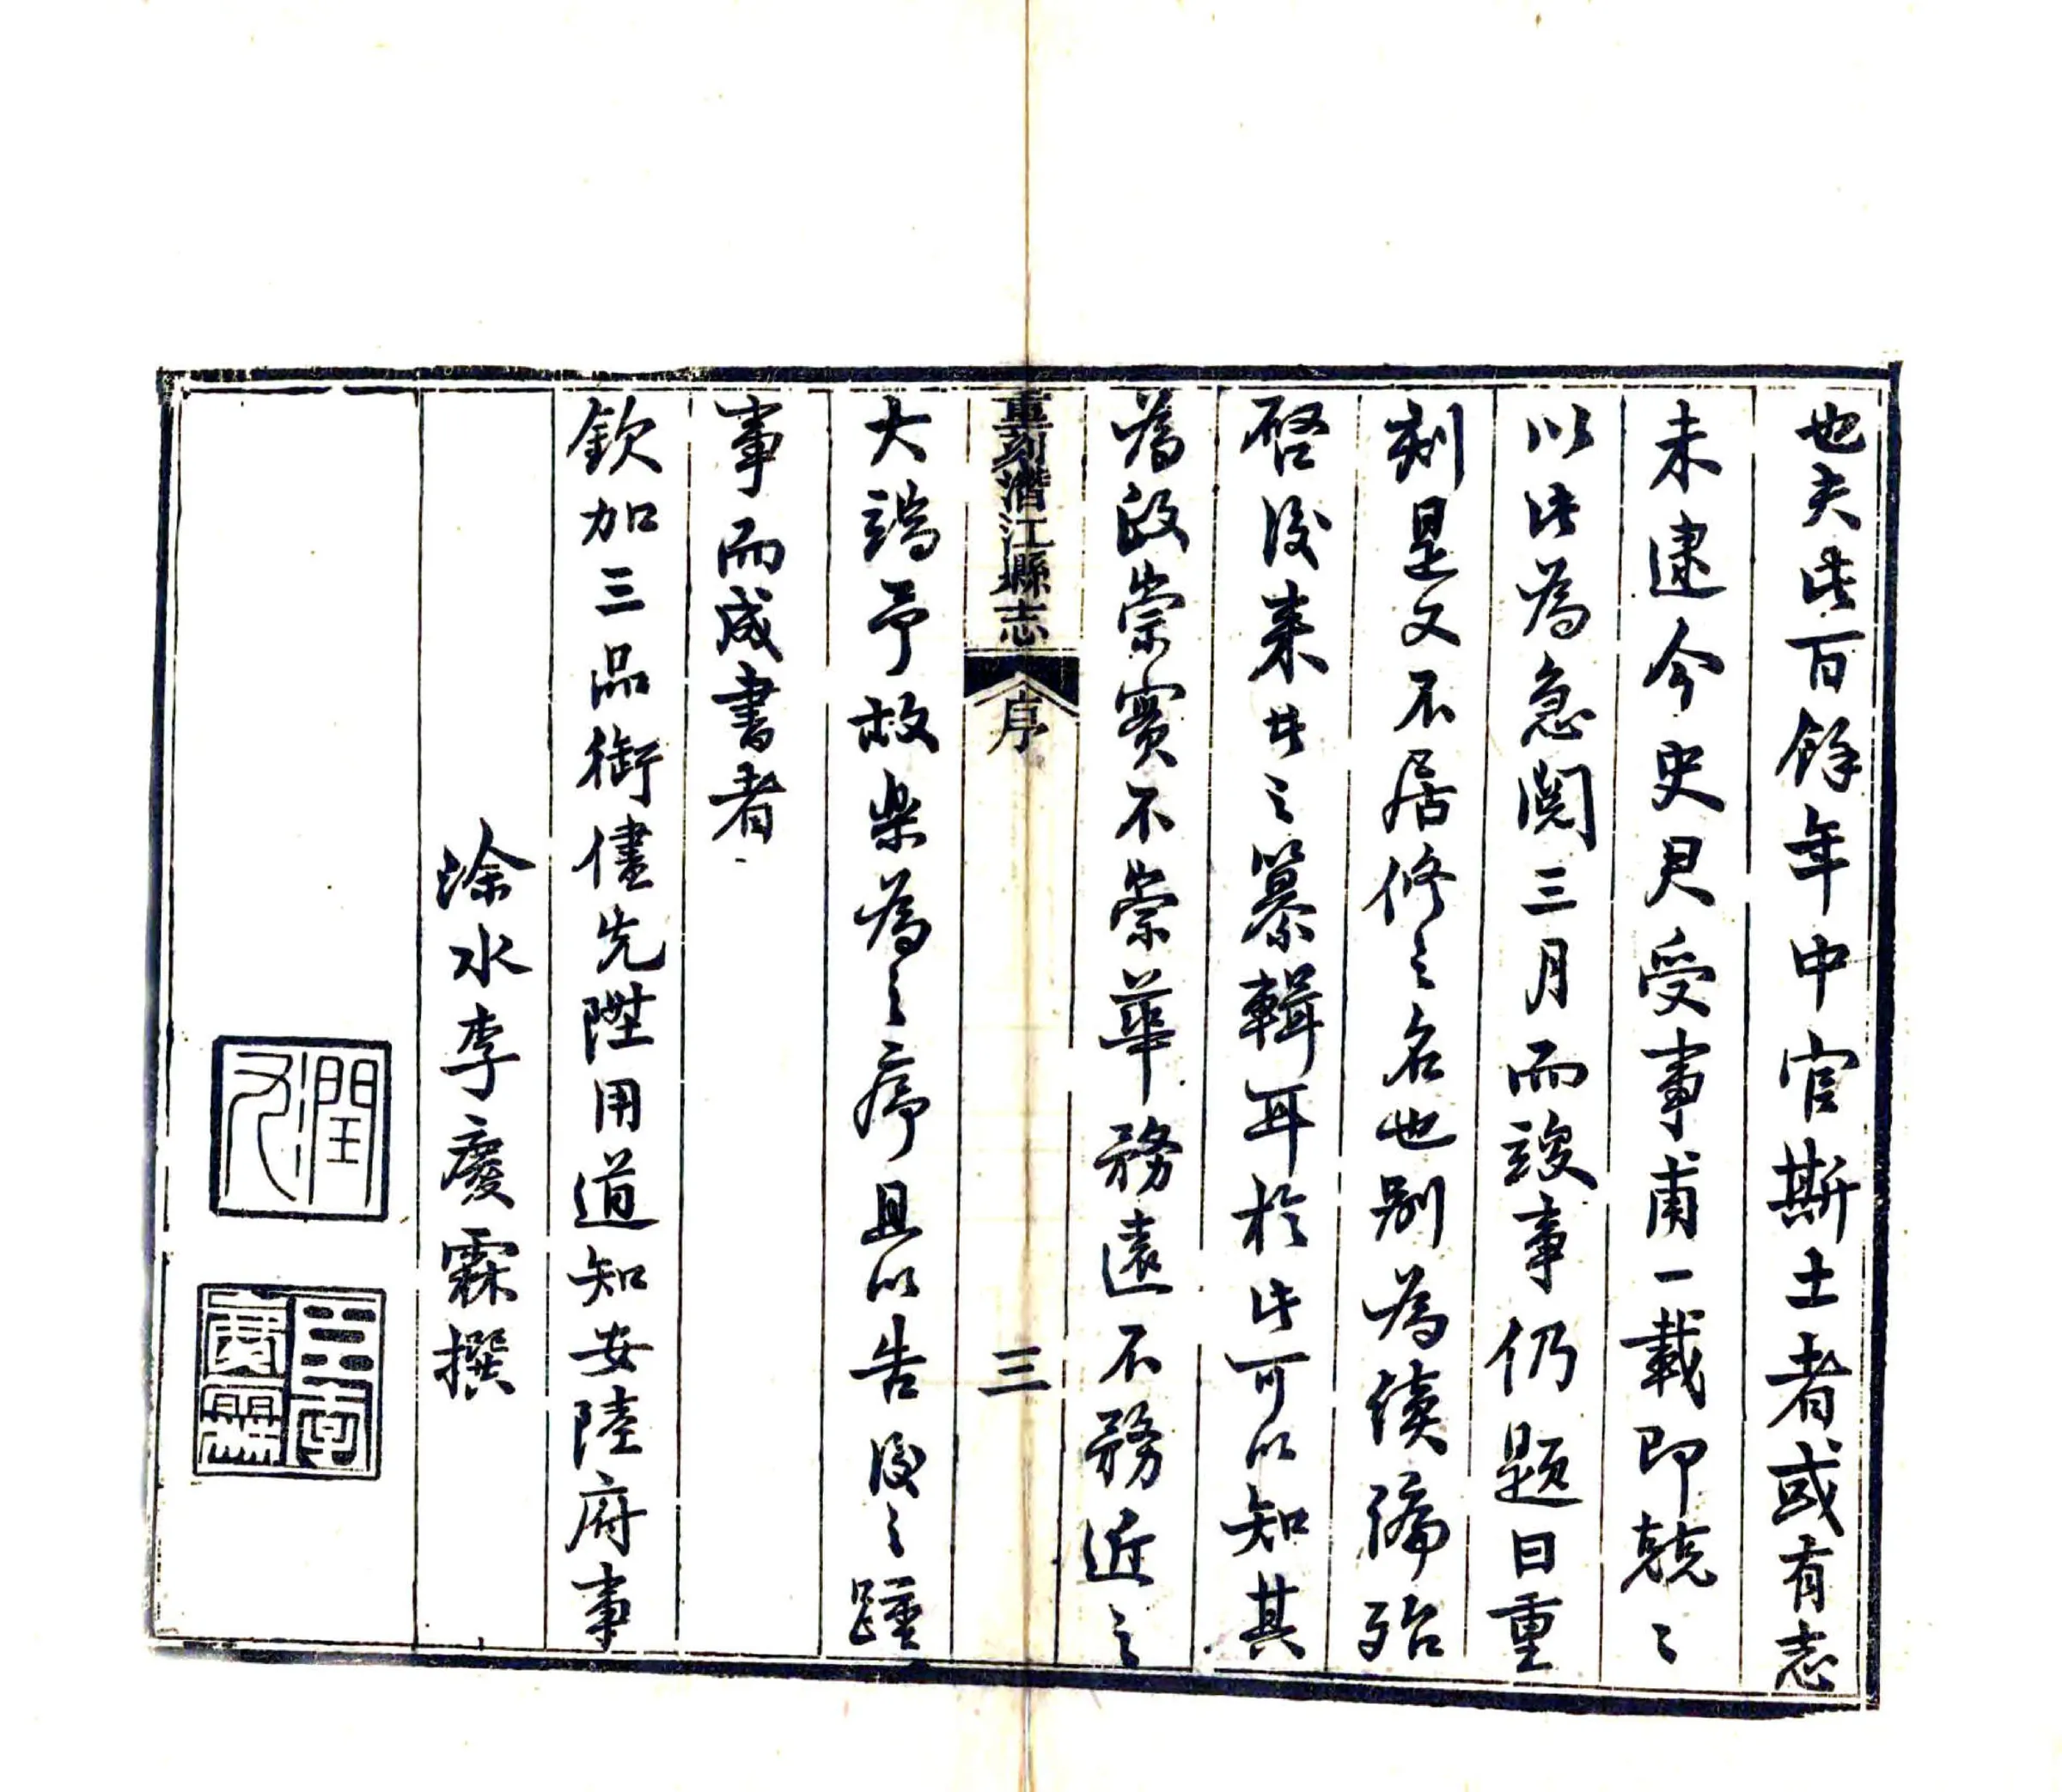 也夫此百餘年中官斯土者或有志
未逮今史君受事甫一載即兢〻
以此為急閱三月而竣事仍題曰重
刻是又不居修之名也別為續編殆
啓後來者之纂輯耳於此可以知其
為政崇實不崇華務遠不務近之
重刻潛江縣志 序 三
大端予故樂為之序且以告後之踵
事而成書者
欽加三品銜儘先陞用道知安陸府事
涂水李慶霖撰
潤九